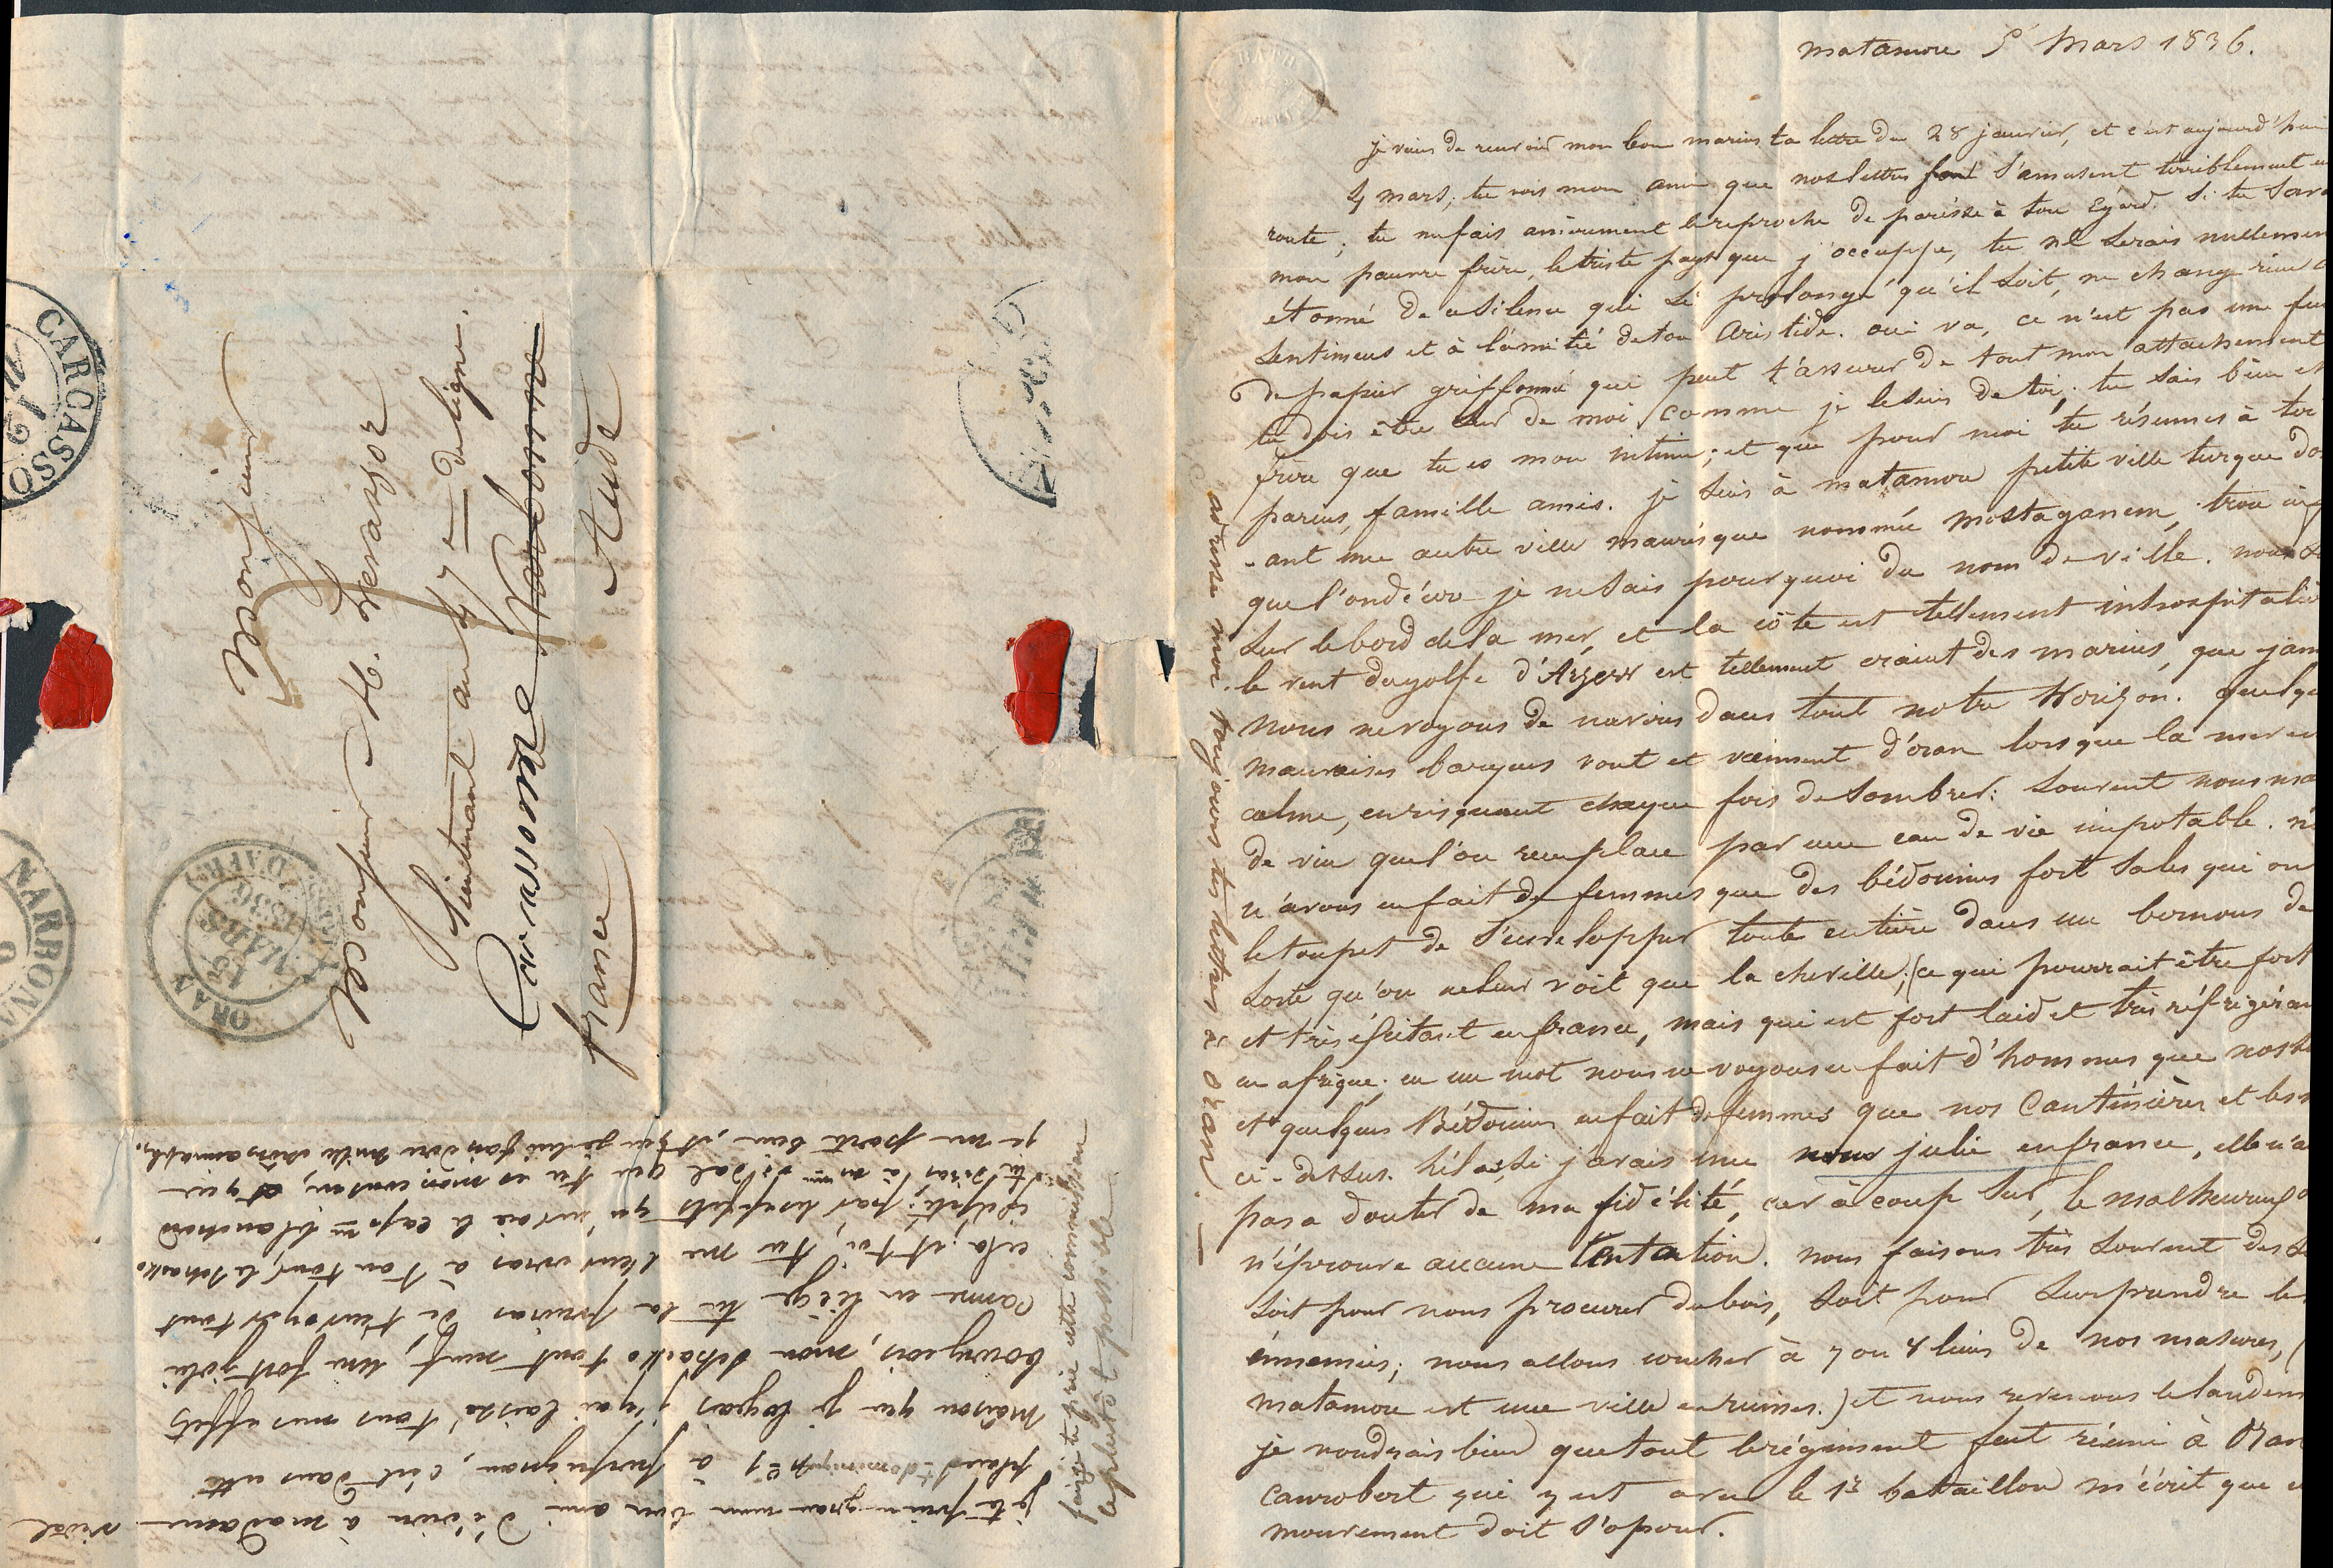 matamore 5 Mars 1836.
je viens de recevoir mon bon marius ta lettre du 28 janvier, et c'est aujourd'hui
4 mars; tu vois mon ami que nos lettres s'amusent terriblement en
route; tu me fais amèrement le reproche de paresse à ton égard. Si tu sav
mon pauvre frère, le triste pays que j'occuppe, tu ne serais nullemen
étonné de ce silence qui si prolongé qu'il soit, ne change rien a
sentimens et à l'amitié de ton Aristide. oui va, ce n'est pas une feu
de papier griffonné qui peut t'assurer de tout mon attachement
tu dois être sur de moi comme je le suis de toi; tu sais bien et
frère que tu es mon intime; et que pour moi tu résumes à toi
parens, famille amis. je suis à matamore petite ville turque do
-ant une autre ville mauresque nommée mostaganem, trou
que l'on décore je ne sais pourquoi du nom de ville. nous
sur le bord de la mer, et la côte est tellement inhospitaliè
le vent du golfe d'Arzew est tellement craint des marins, que jam
nous ne voyons de navires dans tout notre horizon. quelqu
mauvaises barques vont et viennent d'oran lorsque la mer es
calme, en risquant chaque fois de sombrer: souvent nous ma
de vin que l'on remplace par une eau de vie impotable. n
n'avons en fait de femmes que des bédouines fort sales qui on
le toupet de s'envelopper toute entière dans un bernous de
sorte qu'on ne leur voit que la cheville; (ce qui pourrait être fort
et très excitant en france, mais qui est fort laid et très réfrigéran
en afrique; en un mot nous ne voyons en fait d'hommes que nos
et quelques Bédouins en fait de femmes que nos Cantinières et les
ci-dessus. hélas, si j'avais une julie en france, elle n'a
pas a douter de ma fidélité, car à coup sur, le malheureux
n'éprouve aucune tentation. nous faisons très souvent des
soit pour nous procurer du bois, soit pour surprendre les
ennemis; nous allons coucher à 7 ou 8 lieues de nos masures, (
matamore est une ville en ruines.) et nous revenons le lendem
je voudrais bien que tout le régiment fut réuni à Oran
canrobert qui y est avec le 1er bataillon m'écrit que c
mouvement doit s'opérer.
adresse moi toujours tes lettres à Oran. —
Monsieur
Monsieur H. Levassor
Lieutenant au 47e de ligne.
Carcassonne Narbonne
Aude
france
CARCASSO
NARBONN
ORAN
MARS
1836
D'AFR.
je te prierai mon bon ami d'écrire à madame vidal
place St dominique no 1 à perpignan, c'est dans cette
maison que je logeais j'y ai laissé tous mes effets
bourgeois, mon schako tout neuf, une fort jolie
canne en liège tu la prieras de t'envoyer tout
cela. et toi, tu me l'enverras à ton tour, le schako
excepté; par les effets qu'envoie le capne blanchard
tu diras à me vidal que tu es mon cousin, et que
je me porte bien, et que je lui fais dire mille choses aimables.
faire je te prie cette commission
le plutôt possible